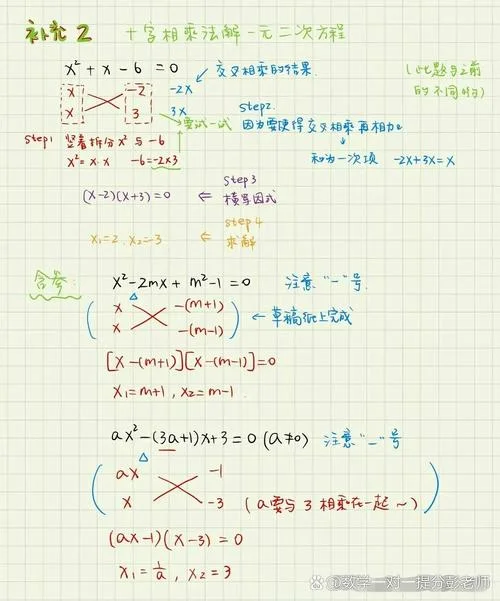 补充2 十字相乘法解一元二次方程
x²+x-6=0 (此题与之前
的不同哟)
x -2 -2x ← 交叉相乘的结果.
x 3 3x
要试一试
step2.
因为要使得交叉相乘再相加。
step1 竖着拆分x²与-6
x²=x·x -6=-2×3
和为一次项 -2x+3x=x
(x-2)(x+3)=0 ⇐ step3
横写因式
x₁=2, x₂=-3 ⇐ step4
求解
含参: x²-2mx+m²-1=0 注意"-"号.
x -(m+1)
x -(m-1) ← 草稿纸上完成
[x-(m+1)][x-(m-1)]=0
x₁=m+1, x₂=m-1
ax²-(3a+1)x+3=0 (a≠0) 注意"-"号
ax -1
x -3 (a要与3相乘在一起~)
(ax-1)(x-3)=0
x₁=1/a, x₂=3
@数学一对一提分彭老师